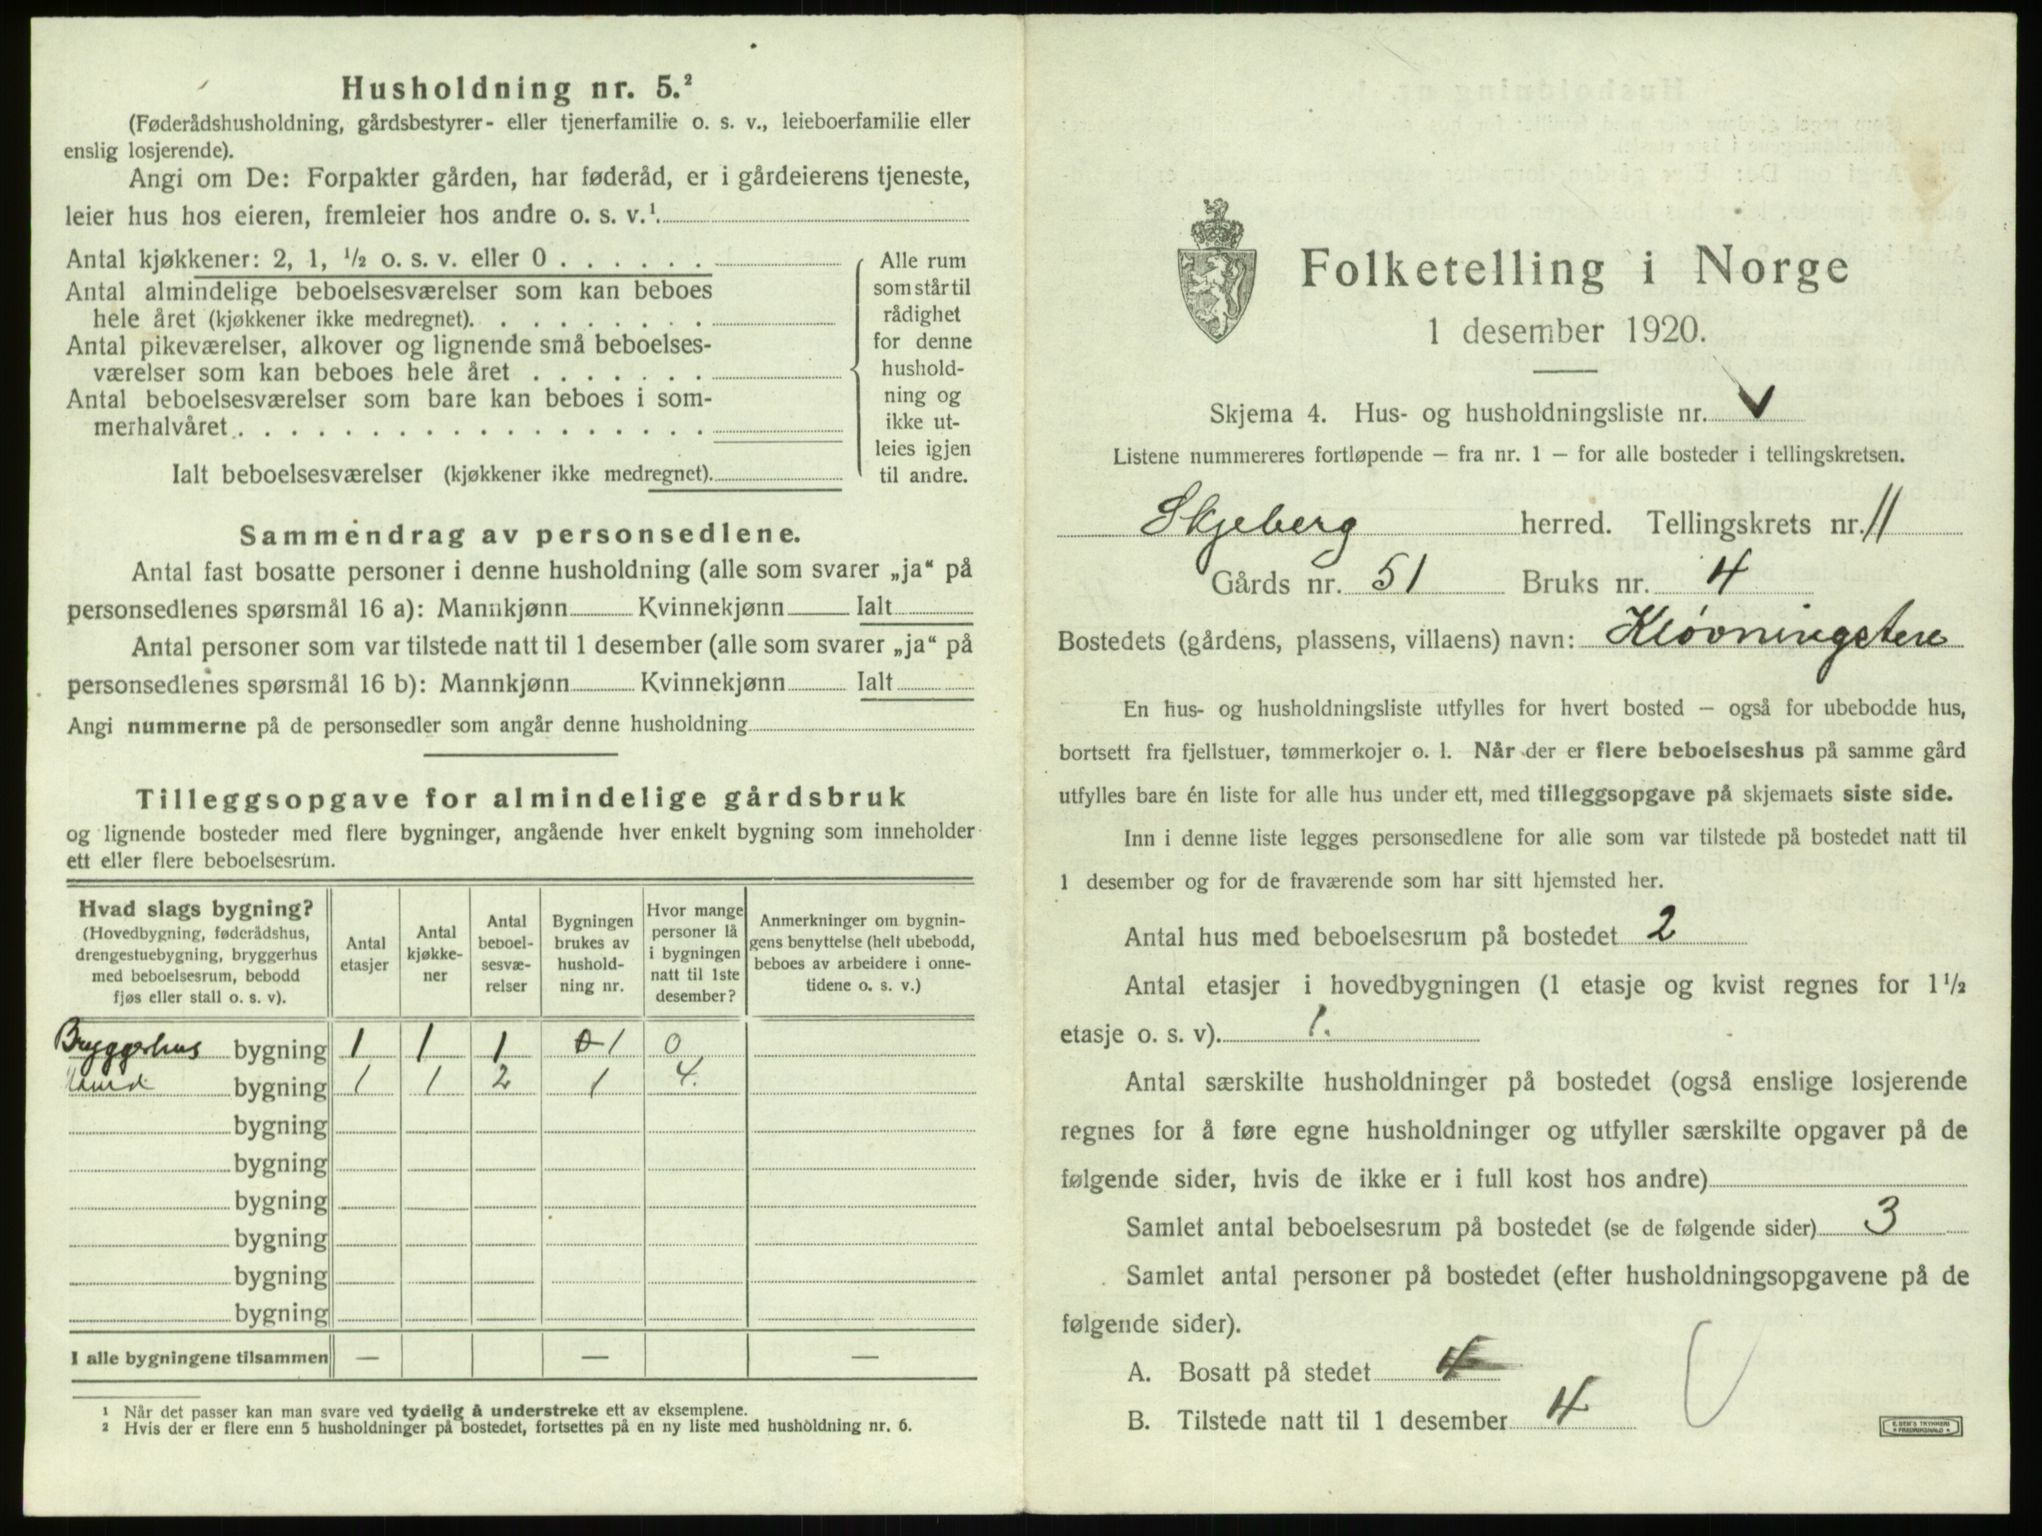 Husholdning nr. 5.²
(Føderådshusholdning, gårdsbestyrer- eller tjenerfamilie o. s. v., leieboerfamilie eller
enslig losjerende).
Angi om De: Forpakter gården, har føderåd, er i gårdeierens tjeneste,
leier hus hos eieren, fremleier hos andre o. s. v.¹
Antal kjøkkener: 2, 1, ½ o. s. v. eller 0 . . . . . .
Antal almindelige beboelsesværelser som kan beboes
hele året (kjøkkener ikke medregnet). . . . . . . . .
Antal pikeværelser, alkover og lignende små beboelses-
værelser som kan beboes hele året . . . . . . .
Antal beboelsesværelser som bare kan beboes i som-
merhalvåret . . . . . . . . . . . . . . . . . .
Ialt beboelsesværelser (kjøkkener ikke medregnet).
Alle rum
som står til
rådighet
for denne
hushold-
ning og
ikke ut-
leies igjen
til andre.
Sammendrag av personsedlene.
Antal fast bosatte personer i denne husholdning (alle som svarer „ja“ på
personsedlenes spørsmål 16 a): Mannkjønn Kvinnekjønn Ialt
Antal personer som var tilstede natt til 1 desember (alle som svarer „ja“ på
personsedlenes spørsmål 16 b): Mannkjønn Kvinnekjønn Ialt
Angi nummerne på de personsedler som angår denne husholdning
Tilleggsopgave for almindelige gårdsbruk
og lignende bosteder med flere bygninger, angående hver enkelt bygning som inneholder
ett eller flere beboelsesrum.
Hvad slags bygning?
(Hovedbygning, føderådshus,
drengestuebygning, bryggerhus
med beboelsesrum, bebodd
fjøs eller stall o. s. v).
Antal
etasjer
Antal
kjøkke-
ner
Antal
beboel-
sesvæ-
relser
Bygningen
brukes av
hushold-
ning nr.
Hvor mange
personer lå
i bygningen
natt til 1ste
desember?
Anmerkninger om bygnin-
gens benyttelse (helt ubebodd,
beboes av arbeidere i onne-
tidene o. s. v.)
Bryggerhus bygning 1 1 1 0 1 0
bygning 1 1 2 1 4.
bygning
bygning
bygning
bygning
bygning
bygning
I alle bygningene tilsammen — — —
¹ Når det passer kan man svare ved tydelig å understreke ett av eksemplene.
² Hvis der er flere enn 5 husholdninger på bostedet, fortsettes på en ny liste med husholdning nr. 6.
Folketelling i Norge
1 desember 1920.
Skjema 4. Hus- og husholdningsliste nr.
Listene nummereres fortløpende – fra nr. 1 – for alle bosteder i tellingskretsen.
Skjeberg herred. Tellingskrets nr. 11
Gårds nr. 51 Bruks nr. 4
Bostedets (gårdens, plassens, villaens) navn: Kløvningsten
En hus- og husholdningsliste utfylles for hvert bosted – også for ubebodde hus,
bortsett fra fjellstuer, tømmerkojer o. l. Når der er flere beboelseshus på samme gård
utfylles bare én liste for alle hus under ett, med tilleggsopgave på skjemaets siste side.
Inn i denne liste legges personsedlene for alle som var tilstede på bostedet natt til
1 desember og for de fraværende som har sitt hjemsted her.
Antal hus med beboelsesrum på bostedet 2
Antal etasjer i hovedbygningen (1 etasje og kvist regnes for 1½
etasje o. s. v). 1.
Antal særskilte husholdninger på bostedet (også enslige losjerende
regnes for å føre egne husholdninger og utfyller særskilte opgaver på de
følgende sider, hvis de ikke er i full kost hos andre)
Samlet antal beboelsesrum på bostedet (se de følgende sider) 3
Samlet antal personer på bostedet (efter husholdningsopgavene på de
følgende sider).
A. Bosatt på stedet 4
B. Tilstede natt til 1 desember 4